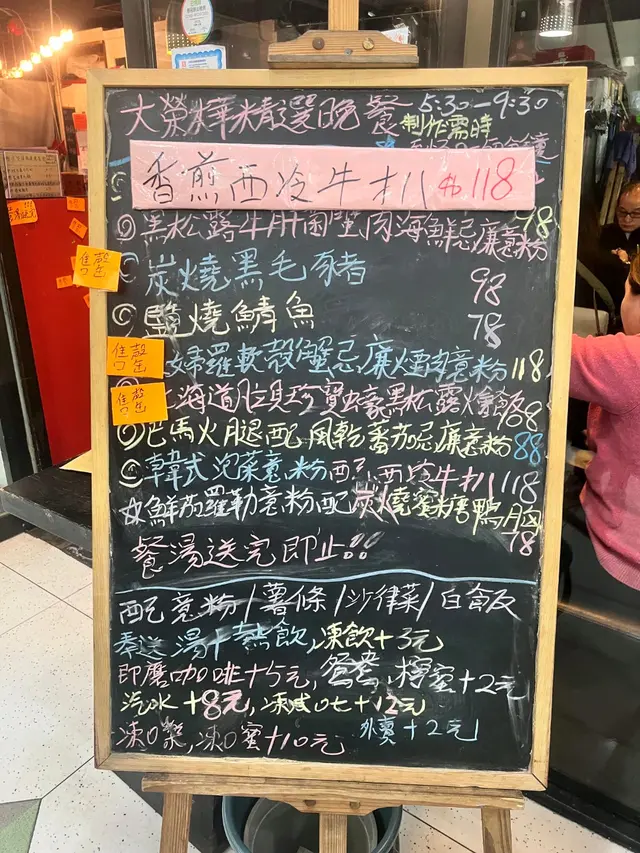 大榮華精選晚餐 5:30-9:30
制作需時
香煎西冷牛扒 $118
黑松露牛肝菌蟹肉海鮮忌廉意粉 98
炭燒黑毛豬 98
售罄
鹽燒鯖魚 78
售罄 羅軟殼蟹忌廉煙肉意粉 118
售罄 海道 珍寶蠔黑松露燴飯 108
巴馬火腿配風乾番茄忌廉意粉 88
韓式泡菜意粉配西冷牛扒 118
鮮茄羅勒意粉配炭燒蜜糖鴨胸 78
餐湯送完即止!!
配意粉/薯條/沙律菜/白飯
奉送湯+熱飲,凍飲+3元
即磨咖啡+5元,鴛鴦,檸蜜+2元
汽水+8元,凍咸0七+12元
凍0蜜+10元 外賣+2元